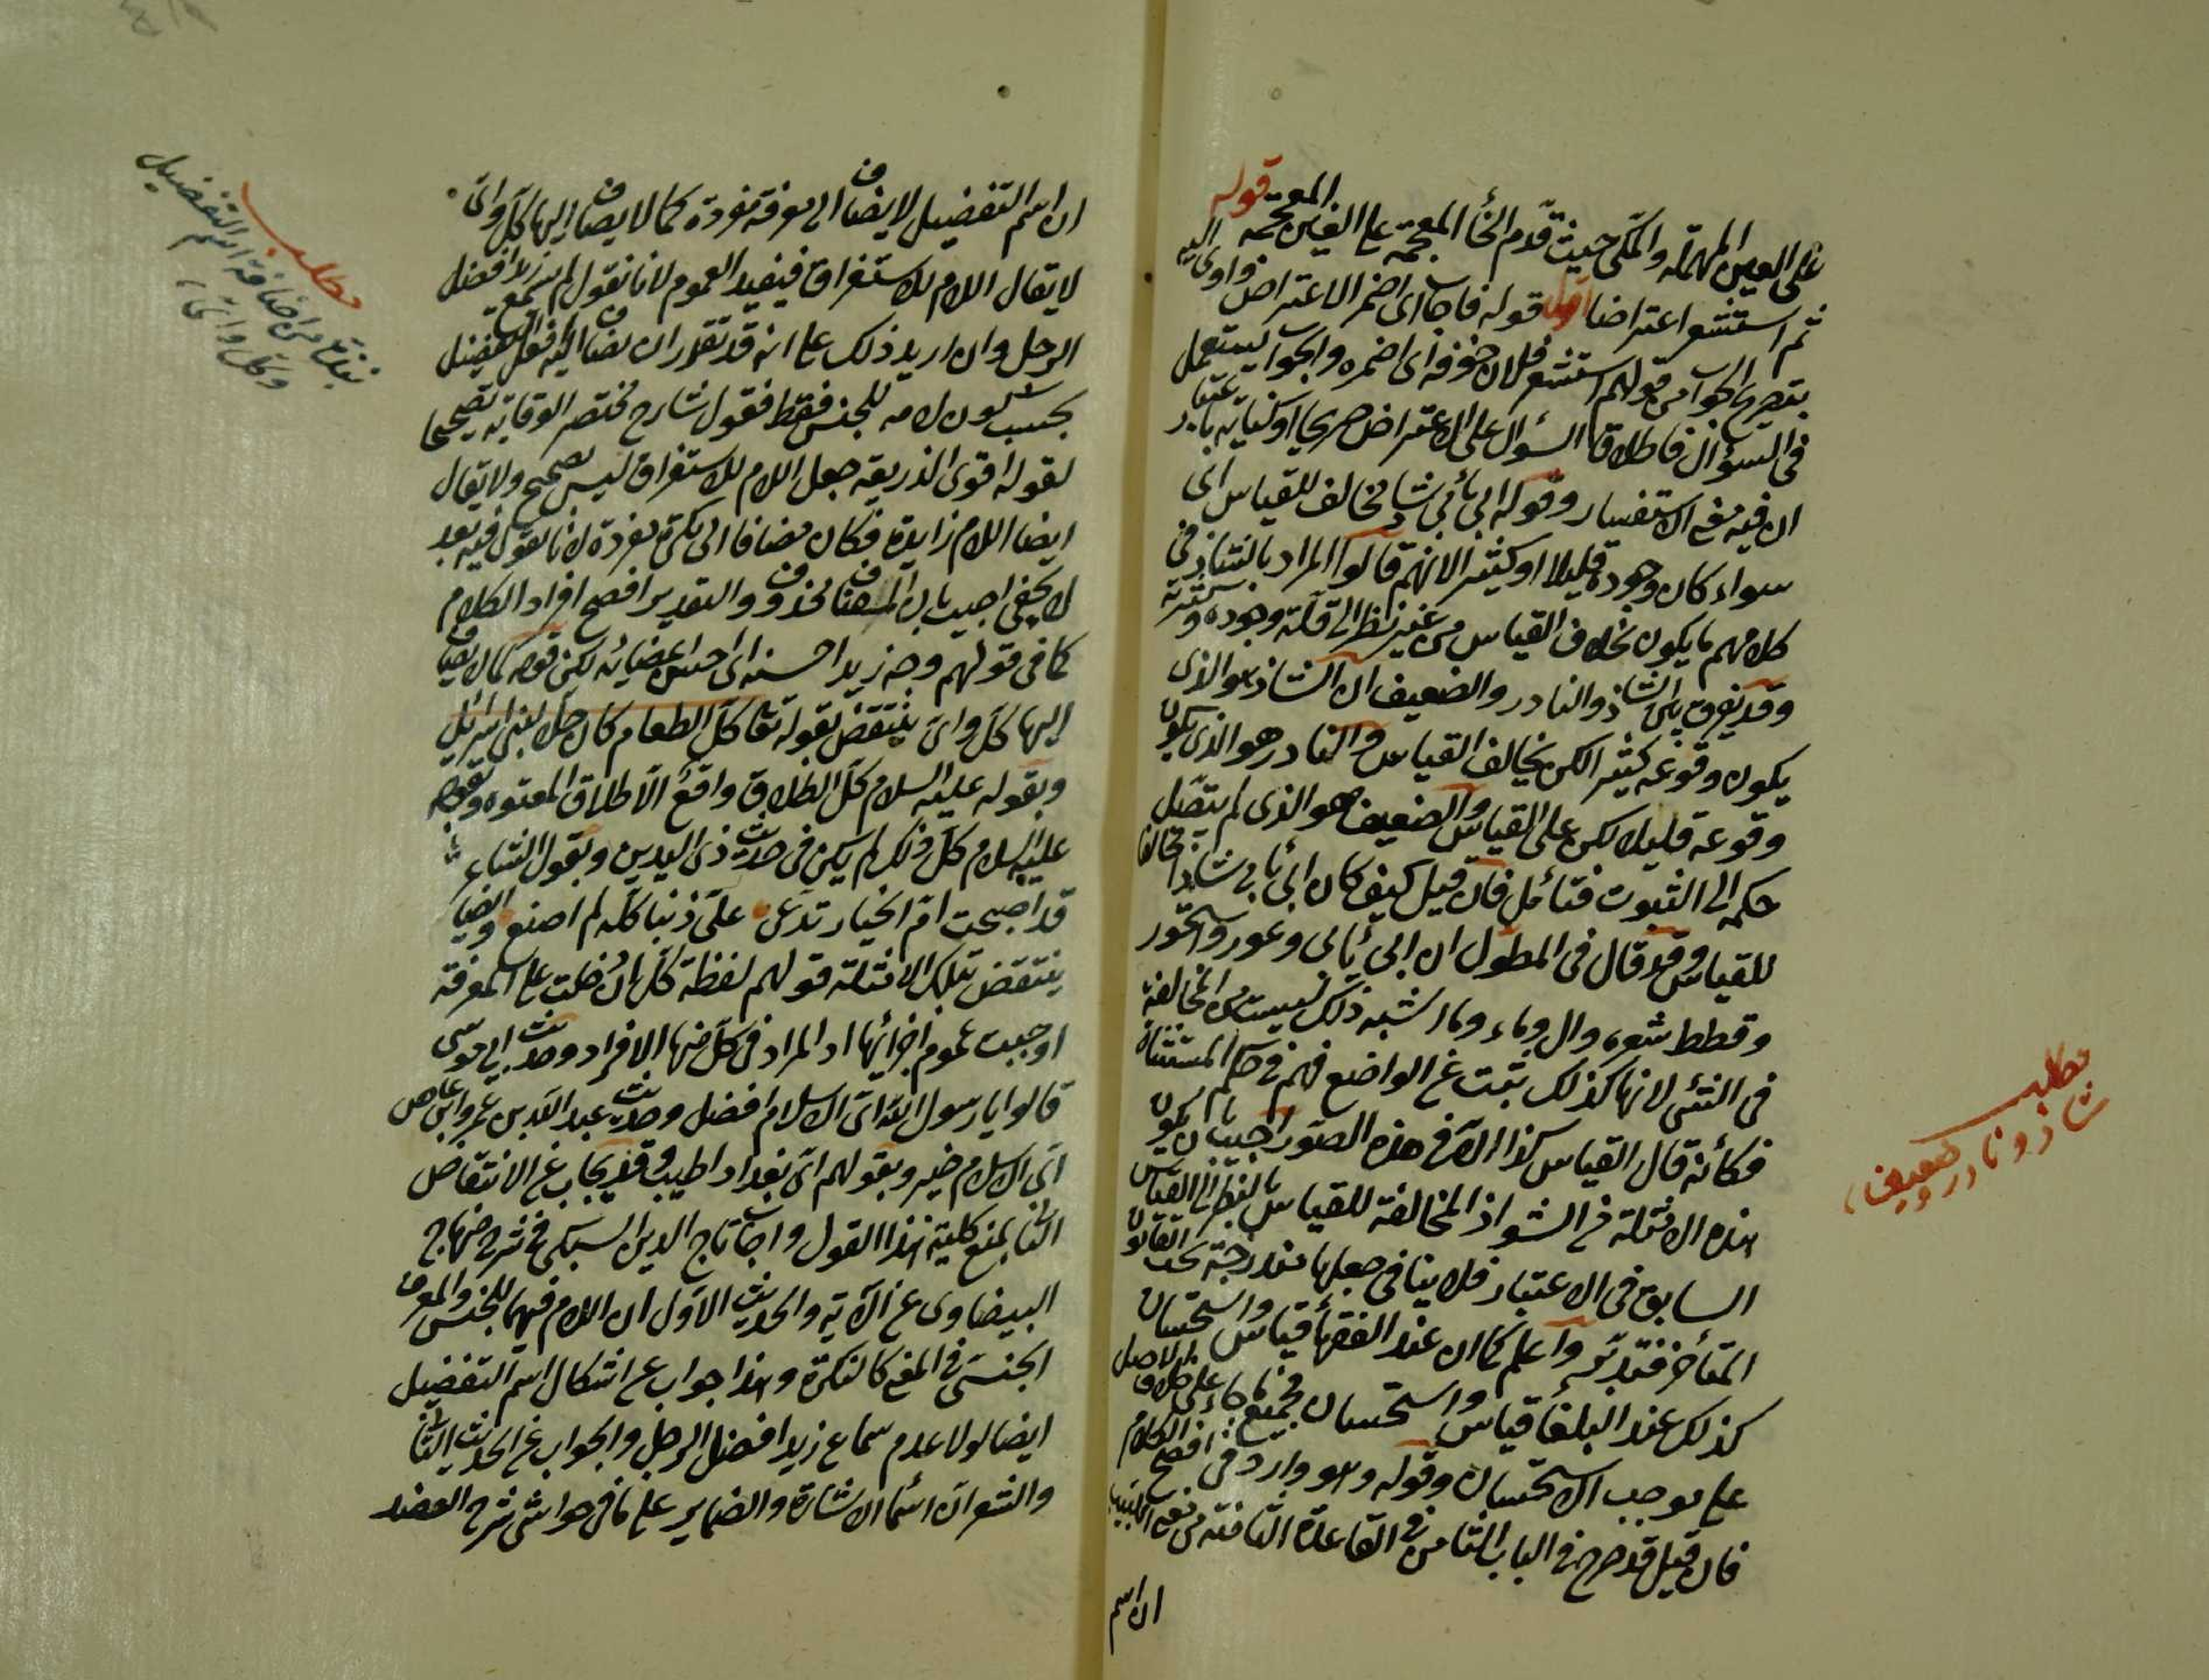 على العين المهملة والمكي حيث قدم الخاء المعجمة على الغين المعجمة قوله
ثم استشعر اعتراضا اقول قوله فاجاب اى اضمر الاعتراض واومى اليه
بتصريح الجواب من قولهم استشعر فلان خوفه اى اضمره والجواب يستعمل
فى السؤال فاطلاق السؤال على الاعتراض صريحا او كناية باعتبار
ان فيه معنى الاستفسار وقوله ابى يأبى شاذ مخالف للقياس اى
سواء كان وجوده قليلا او كثيرا لانهم قالوا المراد بالشاذ فى
كلامهم ما يكون بخلاف القياس من غير نظر الى قلة وجوده وكثرته
وقد يفرق بين الشاذ والنادر والضعيف ان الشاذ هو الذى
يكون وقوعه كثيرا لكن يخالف القياس والنادر هو الذى يكون
وقوعه قليلا لكن على القياس والضعيف هو الذى لم يتصل
حكمه الى الثبوت فتأمل فان قيل كيف كان ابى يأبى شاذا مخالفا
للقياس وقد قال فى المطول ان ابى يأبى وعور واستحوذ
وقطط شعره وآل وماء وما اشبه ذلك ليست من المخالفة
فى شئ لانها كذلك ثبتت عن الواضع فهم فى حكم المستثناة
فكأنه قال القياس كذا الا فى هذه الصور اجيب بان يكون
هذه الامثلة من الشواذ المخالفة للقياس بالنظر الى القياس
السابق فى الاعتبار فلا ينافى جعلها مندرجة تحت القانون
المتأخر فتدبر واعلم كما ان عند الفقهاء قياس واستحسان
كذلك عند البلغاء قياس واستحسان فجميع ما جاء على خلاف الاصل
على موجب الاستحسان وقوله وهو وارد فى افصح الكلام
فان قيل قد صرح فى الباب الثامن فى القاعدة الثامنة من مغنى اللبيب
ان اسم
مطلب
شاذ ونادر وضعيف
ان اسم التفضيل لا يضاف الى معرفة مفردة كما لا يضاف اليها كل واى
لا يقال اللام للاستغراق فيفيد العموم لانا نقول لم يسمع زيد افضل
الرجل وان اريد ذلك على انه قد تقرر ان مضاف اليه افعل التفضيل
يجب كون لامه للجنس فقط فقول شارح مختصر الوقاية تصحيحا
لقوله اقوى الذريعة جعل اللام للاستغراق ليس بصحيح ولا يقال
ايضا اللام زايدة فكان مضافا الى نكرة مفردة لانا نقول فيه بعد
لا يخفى اجيب بان المضاف محذوف والتقدير افصح افراد الكلام
كما فى قولهم وجه زيد احسنه اى احسن اعضائه لكن قوله كما لا يضاف
اليها كل واى ينتقض بقوله تعالى كل الطعام كان حلا لبنى اسرائيل
وبقوله عليه السلام كل الطلاق واقع الا طلاق المعتوه وبقوله
عليه السلام كل ذلك لم يكن فى حديث ذى اليدين وبقول الشاعر
قد اصبحت ام الخيار تدعى على ذنبا كله لم اصنع وايضا
ينتقض بتلك الامثلة قولهم لفظة كل ان دخلت على المعرفة
اوجبت عموم اجزائها اذ المراد فى كل منها الافراد وحديث ابى موسى
قالوا يا رسول الله اى الاسلام افضل وحديث عبد الله بن عمرو ابن عاص
اى الاسلام خير وبقولهم اى بغداد اطيب وقد يجاب عن الانتقاض
الثانى بمنع كلية هذا القول واجاب تاج الدين السبكى فى شرح منهاج
البيضاوى عن الآية والحديث الاول ان اللام فيهما للجنس والمعرف
الجنسى فى المعنى كالنكرة وهذا جواب عن اشكال اسم التفضيل
ايضا لولا عدم سماع زيد افضل الرجل والجواب عن الحديث الثانى
والشعر ان اسماء الاشارة والضماير على ما فى حواشى شرح العضد
مطلب
اضافة اسم التفضيل
وكل واى